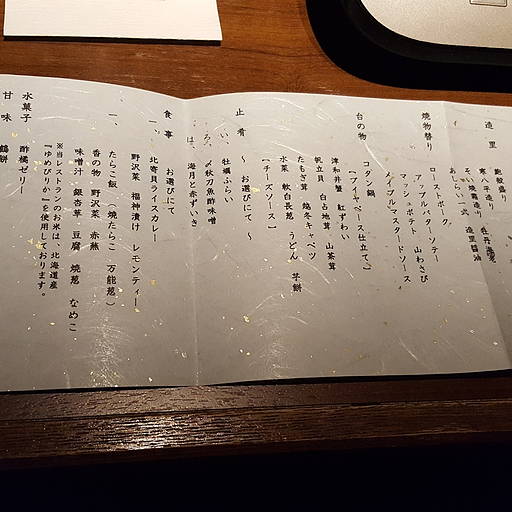 造里
鮑紋盛り
寒八平造り 牡丹海老
そい焼霜造り
あしらい一式 造里醤油
焼物替り
ローストポーク
アップルバターソテー
マッシュポテト 山わさび
メイプルマスタードソース
台の物
コタン鍋
【ブイヤベース仕立て】
津和井蟹 紅ずわい
帆立貝 白古地茸 山茶茸
たもぎ茸 越冬キャベツ
水菜 軟白長葱 うどん 芋餅
【チーズソース】
止肴 〜お選びにて〜
い、牡蠣ふらい
ろ、〆秋刀魚酢味噌
は、海月と赤ずいき
食事
お選びにて
一、北寄貝ライスカレー
野沢菜 福神漬け レモンティー
一、たらこ飯(焼たらこ 万能葱)
香の物 野沢菜 赤蕪
味噌汁 銀杏草 豆腐 焼葱 なめこ
※当レストランのお米は、北海道産
『ゆめぴりか』を使用しております。
水菓子 酢橘ゼリー
甘味 鶴餅